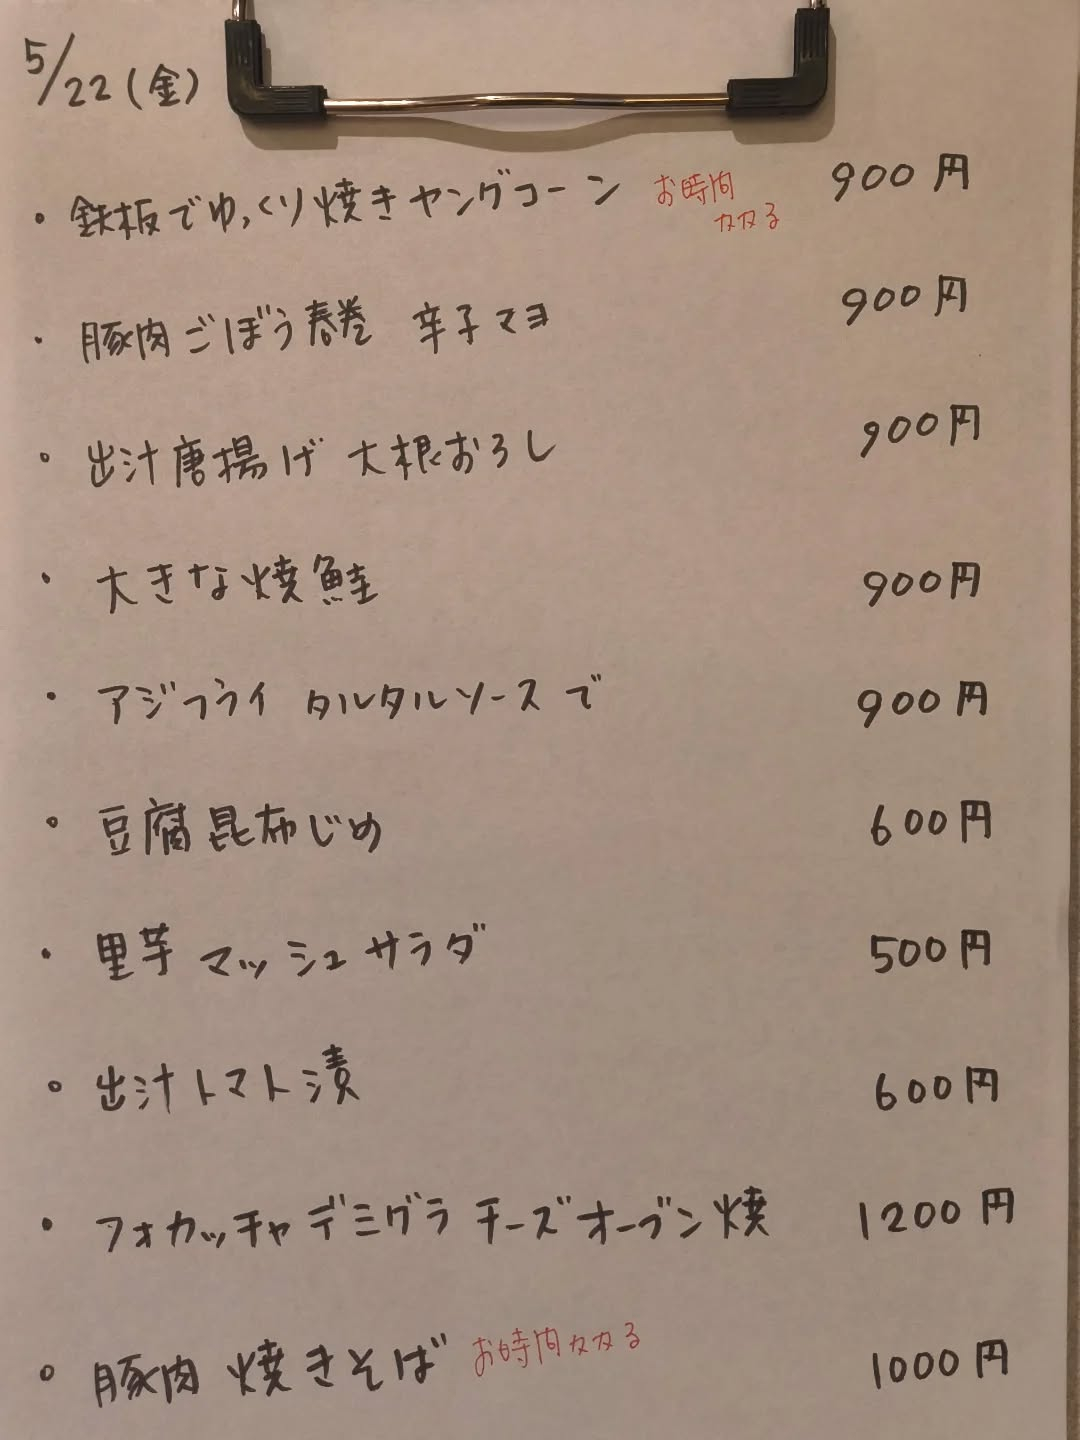 5/22(金)
・鉄板でゆっくり焼きヤングコーン お時間 900円
カカる
・豚肉ごぼう春巻 辛子マヨ 900円
・出汁唐揚げ 大根おろし 900円
・大きな焼鮭 900円
・アジフライ タルタルソースで 900円
・豆腐昆布じめ 600円
・里芋 マッシュサラダ 500円
・出汁トマト漬 600円
・フォカッチャデミグラチーズオーブン焼 1200円
・豚肉 焼きそば お時間カカる 1000円